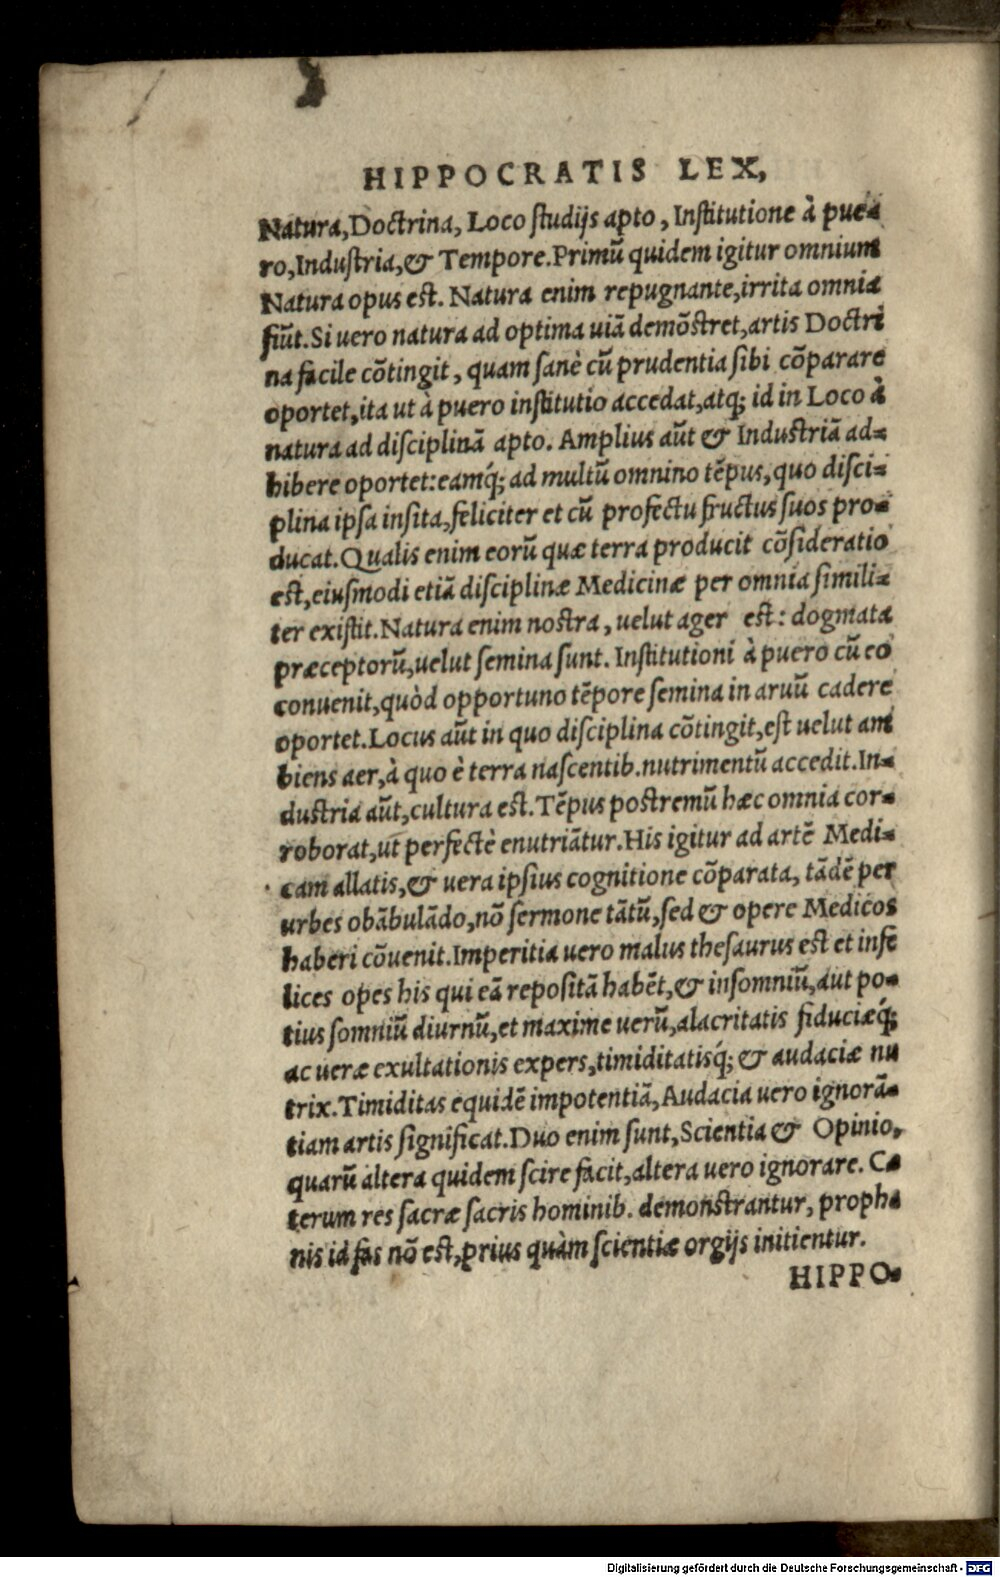 HIPPOCRATIS LEX,
Natura, Doctrina, Loco ſtudijs apto, Inſtitutione à pue-
ro, Induſtria, & Tempore. Primũ quidem igitur omnium
Natura opus est. Natura enim repugnante, irrita omnia
fiũt. Si uero natura ad optima uiã demõſtret, artis Doctri
na facile cõtingit, quam ſanè cũ prudentia ſibi cõparare
oportet, ita ut à puero inſtitutio accedat, atq; id in Loco à
natura ad diſciplinã apto. Amplius aũt & Induſtriã ad-
hibere oportet: eamq́; ad multũ omnino tẽpus, quo diſci-
plina ipſa inſita, feliciter et cũ profectu fructus ſuos pro-
ducat. Qualis enim eorũ quæ terra producit cõſideratio
est, eiuſmodi etiã diſciplinæ Medicinæ per omnia ſimili-
ter exiſtit. Natura enim noſtra, uelut ager est: dogmata
præceptorũ, uelut ſemina ſunt. Inſtitutioni à puero cũ eo
conuenit, quòd opportuno tẽpore ſemina in aruũ cadere
oportet. Locus aũt in quo diſciplina cõtingit, eſt uelut am
biens aer, à quo è terra naſcentib. nutrimentũ accedit. In-
duſtria aũt, cultura est. Tẽpus poſtremũ hæc omnia cor-
roborat, ut perfectè enutriãtur. His igitur ad artẽ Medi-
cam allatis, & uera ipſius cognitione cõparata, tãdẽ per
urbes obãbulãdo, nõ ſermone tãtũ, ſed & opere Medicos
haberi cõuenit. Imperitia uero malus theſaurus est et infe
lices opes his qui eã repoſitã habẽt, & inſomniũ, aut po-
tius ſomniũ diurnũ, et maxime uerũ, alacritatis fiduciæq́;
ac ueræ exultationis expers, timiditatisq́; & audaciæ nu
trix. Timiditas equidẽ impotentiã, Audacia uero ignorã-
tiam artis ſignificat. Duo enim ſunt, Scientia & Opinio,
quarũ altera quidem ſcire facit, altera uero ignorare. Cæ
terum res ſacræ ſacris hominib. demonſtrantur, propha
nis id fas nõ est, prius quàm ſcientiæ orgijs initientur.
HIPPO-
Digitalisierung gefördert durch die Deutsche Forschungsgemeinschaft - DFG